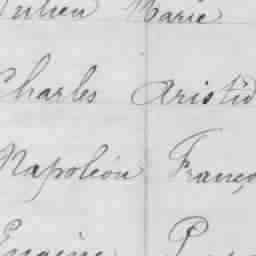 Julien Marie
Charles Aristid
Napoléon Franço
Eugène